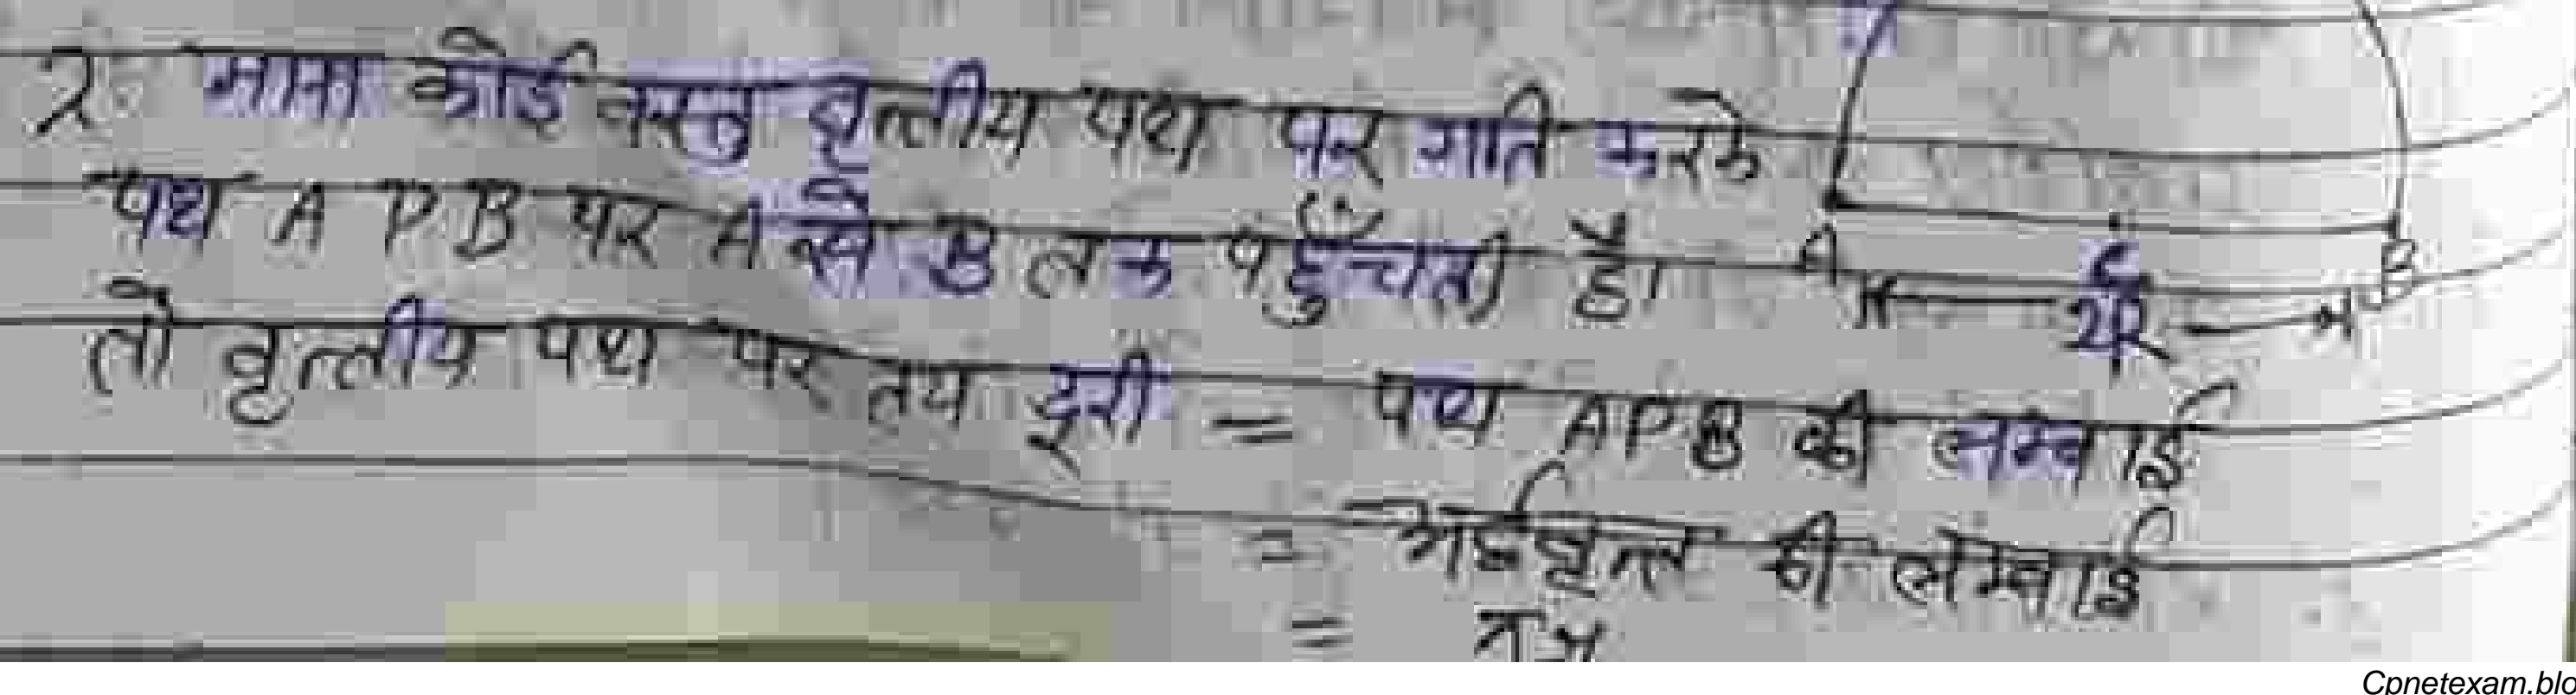 2. माना कोई वस्तु वृत्तीय पथ पर गति करके
पथ A P B पर A से B तक पहुँचती है।
A C B
2R
तो वृत्तीय पथ पर तय दूरी = पथ APB की लम्बाई
= अर्द्धवृत्त की लम्बाई
=
Cpnetexam.blo